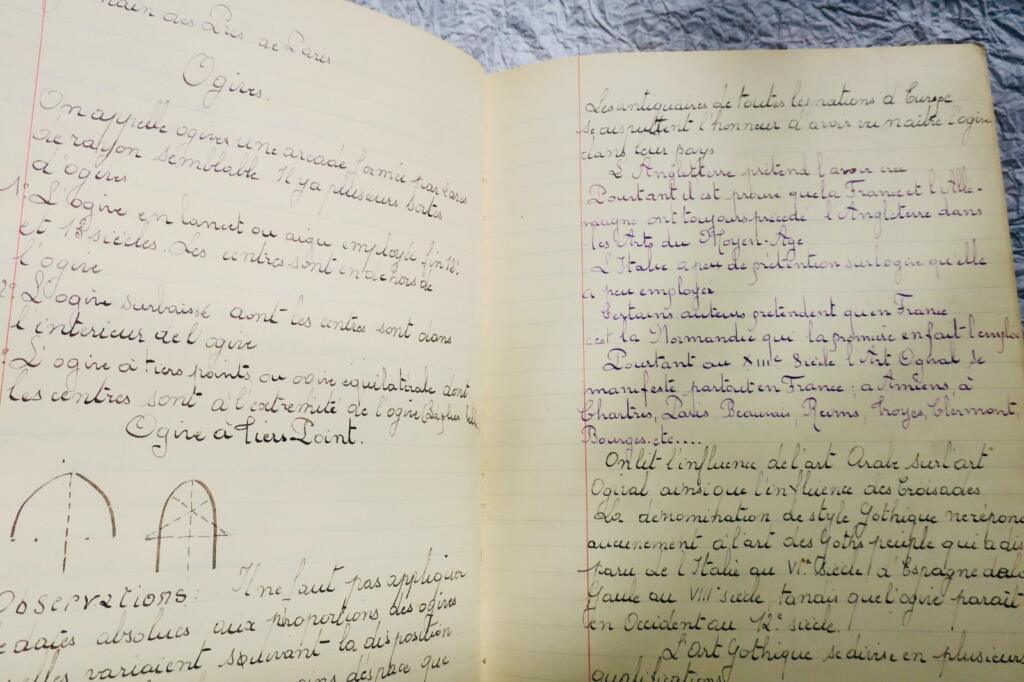 main des Près de Paris
Ogives.
On appelle ogives une arcade formée par 2 arcs
de rayon semblable. Il y a plusieurs sortes
d'ogives
1° L'ogive en lancet ou aigu employée fin 12e.
et 13e siècles. Les centres sont en dehors de
l'ogive
2° L'ogive surbaissé dont les centres sont dans
l'intérieur de l'ogive
° L'ogive à tiers points, ou ogive équilatérale dont
les centres sont à l'extremité de l'ogive (la plus
Ogive à Tiers-Point.
Observations: Il ne faut pas appliquer
dates absolues aux proportions des ogives
elles variaient suivant la disposition
despace que
Les antiquaires de toutes les nations d'Europe
se disputtent l'honneur d'avoir vu naitre l'ogive
dans leur pays
L'Angletterre prétend l'avoir cree
Pourtant il est prouvé que la France et l'Alle-
magne ont toujours précédé l'Angleterre dans
les Arts du Moyen-Age
L'Italie a peu de prétention sur l'ogive qu'elle
a peu employer
Certains auteurs pretendent qu'en France
c'est la Normandie qui la première en fait l'emploi
Pourtant au XIIIe Siècle l'Art Ogival se
manifeste partout en France; a Amiens, à
Chartres, Paris, Beauvais, Reims, Troyes, Clermont,
Bourges. etc....
On lit l'influence de l'art Arabe sur l'art
Ogival ainsi que l'influence des Croisades
La dénomination de style Gothique ne répond
aucunement à l'art des Goths peuple qui a dis
paru de l'Italie au VIe siècle, d'Espagne de la
Gaule au VIIIe siècle, tandis que l'ogive parait
en Occident au 12e siècle.
L'Art Gothique se divise en plusieurs
qualifications